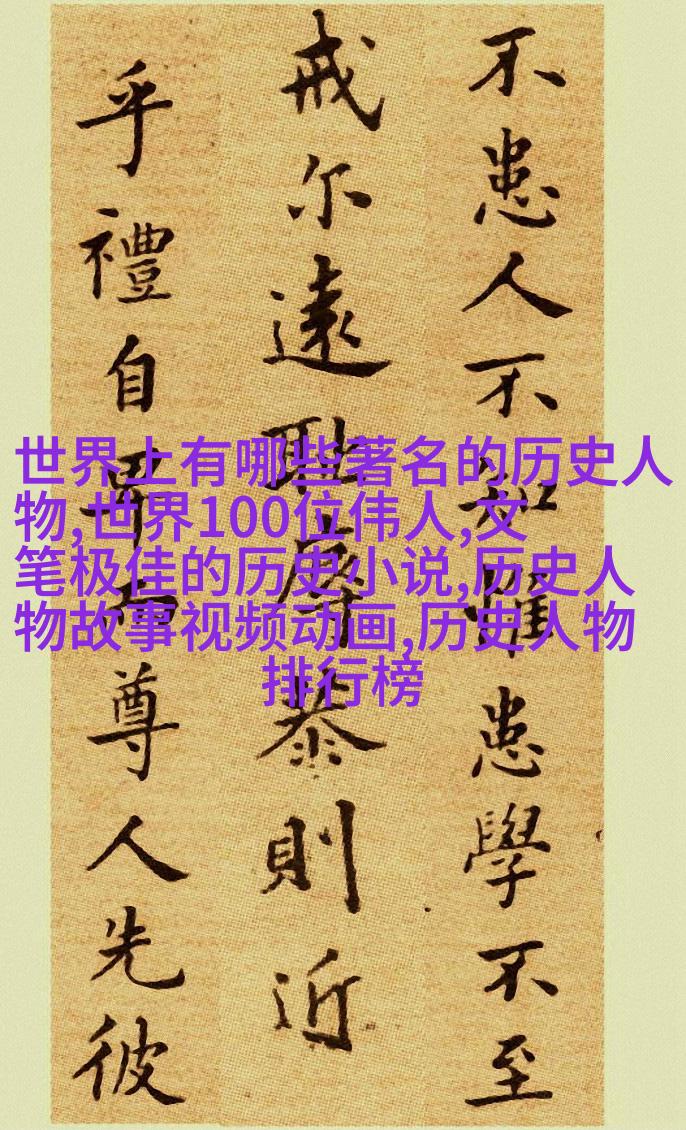 不患人不知惟患學不至
戒尔遠耻辱恭則近
乎禮自卑而尊人先彼
世界上有哪些著名的历史人
物,世界100位伟人,文
笔极佳的历史小说,历史人
物故事视频动画,历史人物
排行榜